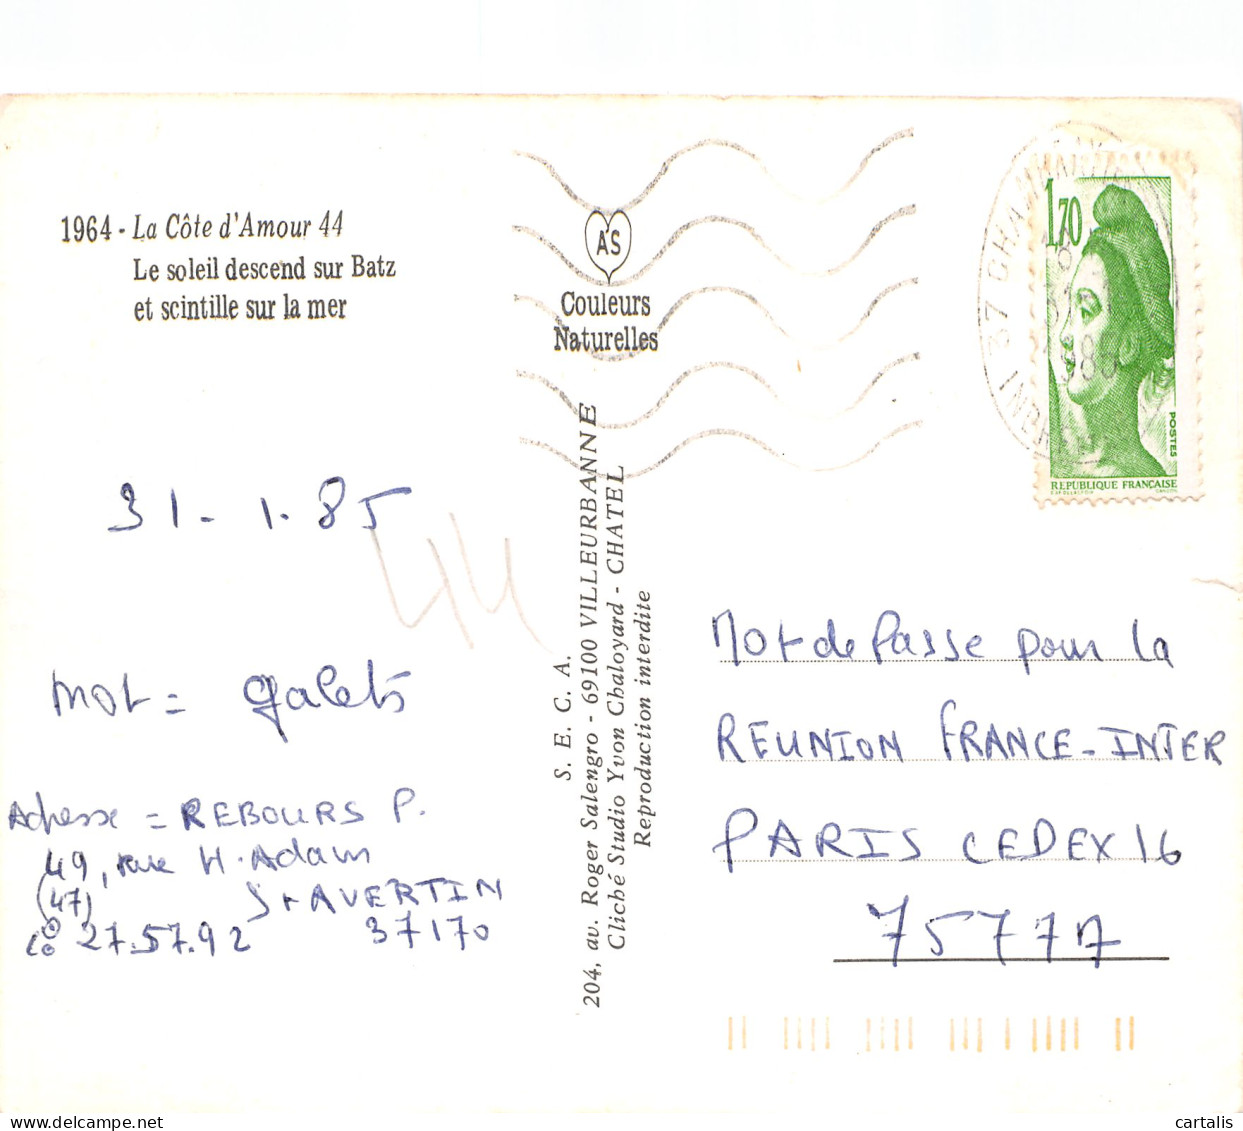 1964 - La Côte d'Amour 44
Le soleil descend sur Batz
et scintille sur la mer
AS
Couleurs
Naturelles
1,70
POSTES
REPUBLIQUE FRANÇAISE
37 CHAMBRAY
31-1
31-1.85
44
Mot = galets
Adresse = REBOURS P.
49, rue H. Adam
(47) St AVERTIN
27.57.92 37170
S. E. C. A.
204, av. Roger Salengro - 69100 VILLEURBANNE
Cliché Studio Yvon Chaloyard - CHATEL
Reproduction interdite
Mot de Passe pour la
REUNION FRANCE-INTER
PARIS CEDEX 16
75777
cartalis